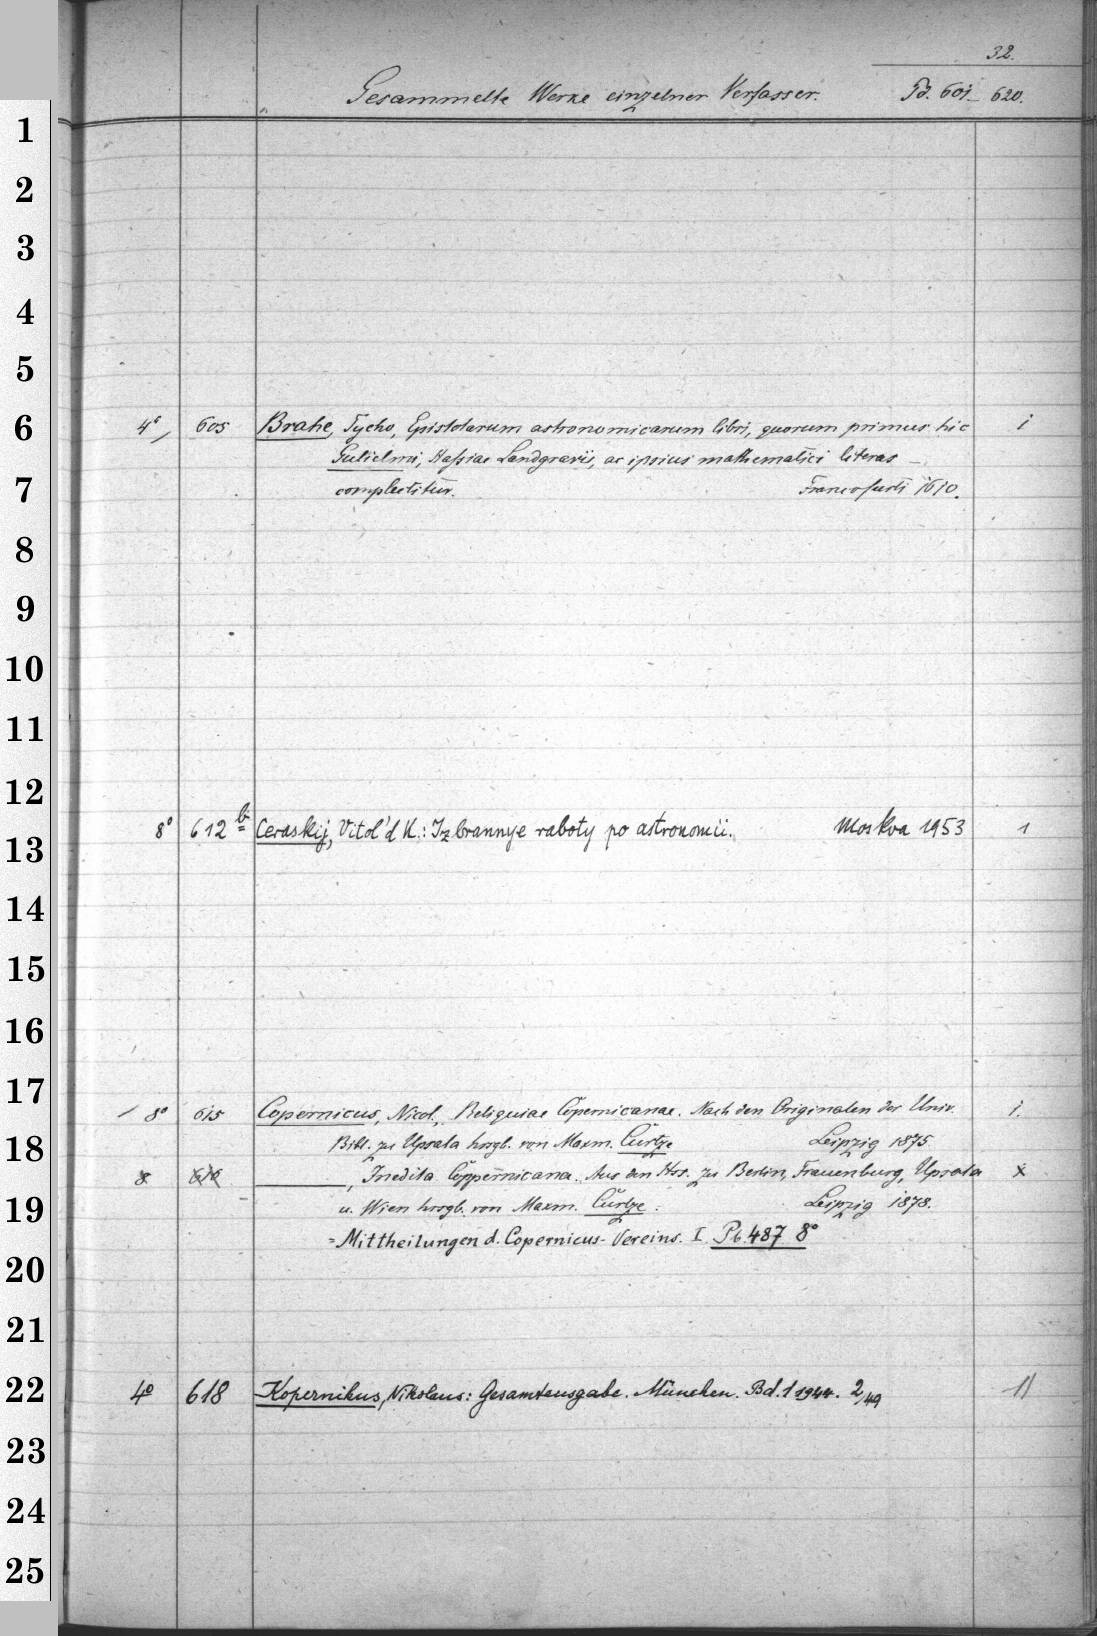 32.
Gesammelte Werke einzelner Verfasser. Pd. 601–620.
1
2
3
4
5
6
4° 605 Brahe, Tycho, Epistolarum astronomicarum libri, quorum primus hic 1
Gulielmi, Hassiae Landgravii, ac ipsius mathematici literas –
7
complectitur. Francofurti 1610.
8
9
10
11
12
8° 612 b Ceraskij, Vitol'd K.: Izbrannye raboty po astronomii. Moskva 1953 1
13
14
15
16
17
8° 615 Copernicus, Nicol., Reliquiae Copernicanae. Nach den Originalen der Univ. 1.
18
Bibl. zu Upsala hrsgb. von Maxm. Curtze Leipzig 1875
8 616 ———, Inedita Coppernicana. Aus den Hss. zu Berlin, Frauenburg, Upsala x
19
u. Wien hrsgb. von Maxm. Curtze. Leipzig 1878.
= Mittheilungen d. Copernicus-Vereins. I. Pb. 487 8°
20
21
22
4° 618 Kopernikus, Nikolaus: Gesamtausgabe. München. Bd. 1 1944. 2/49 11
23
24
25